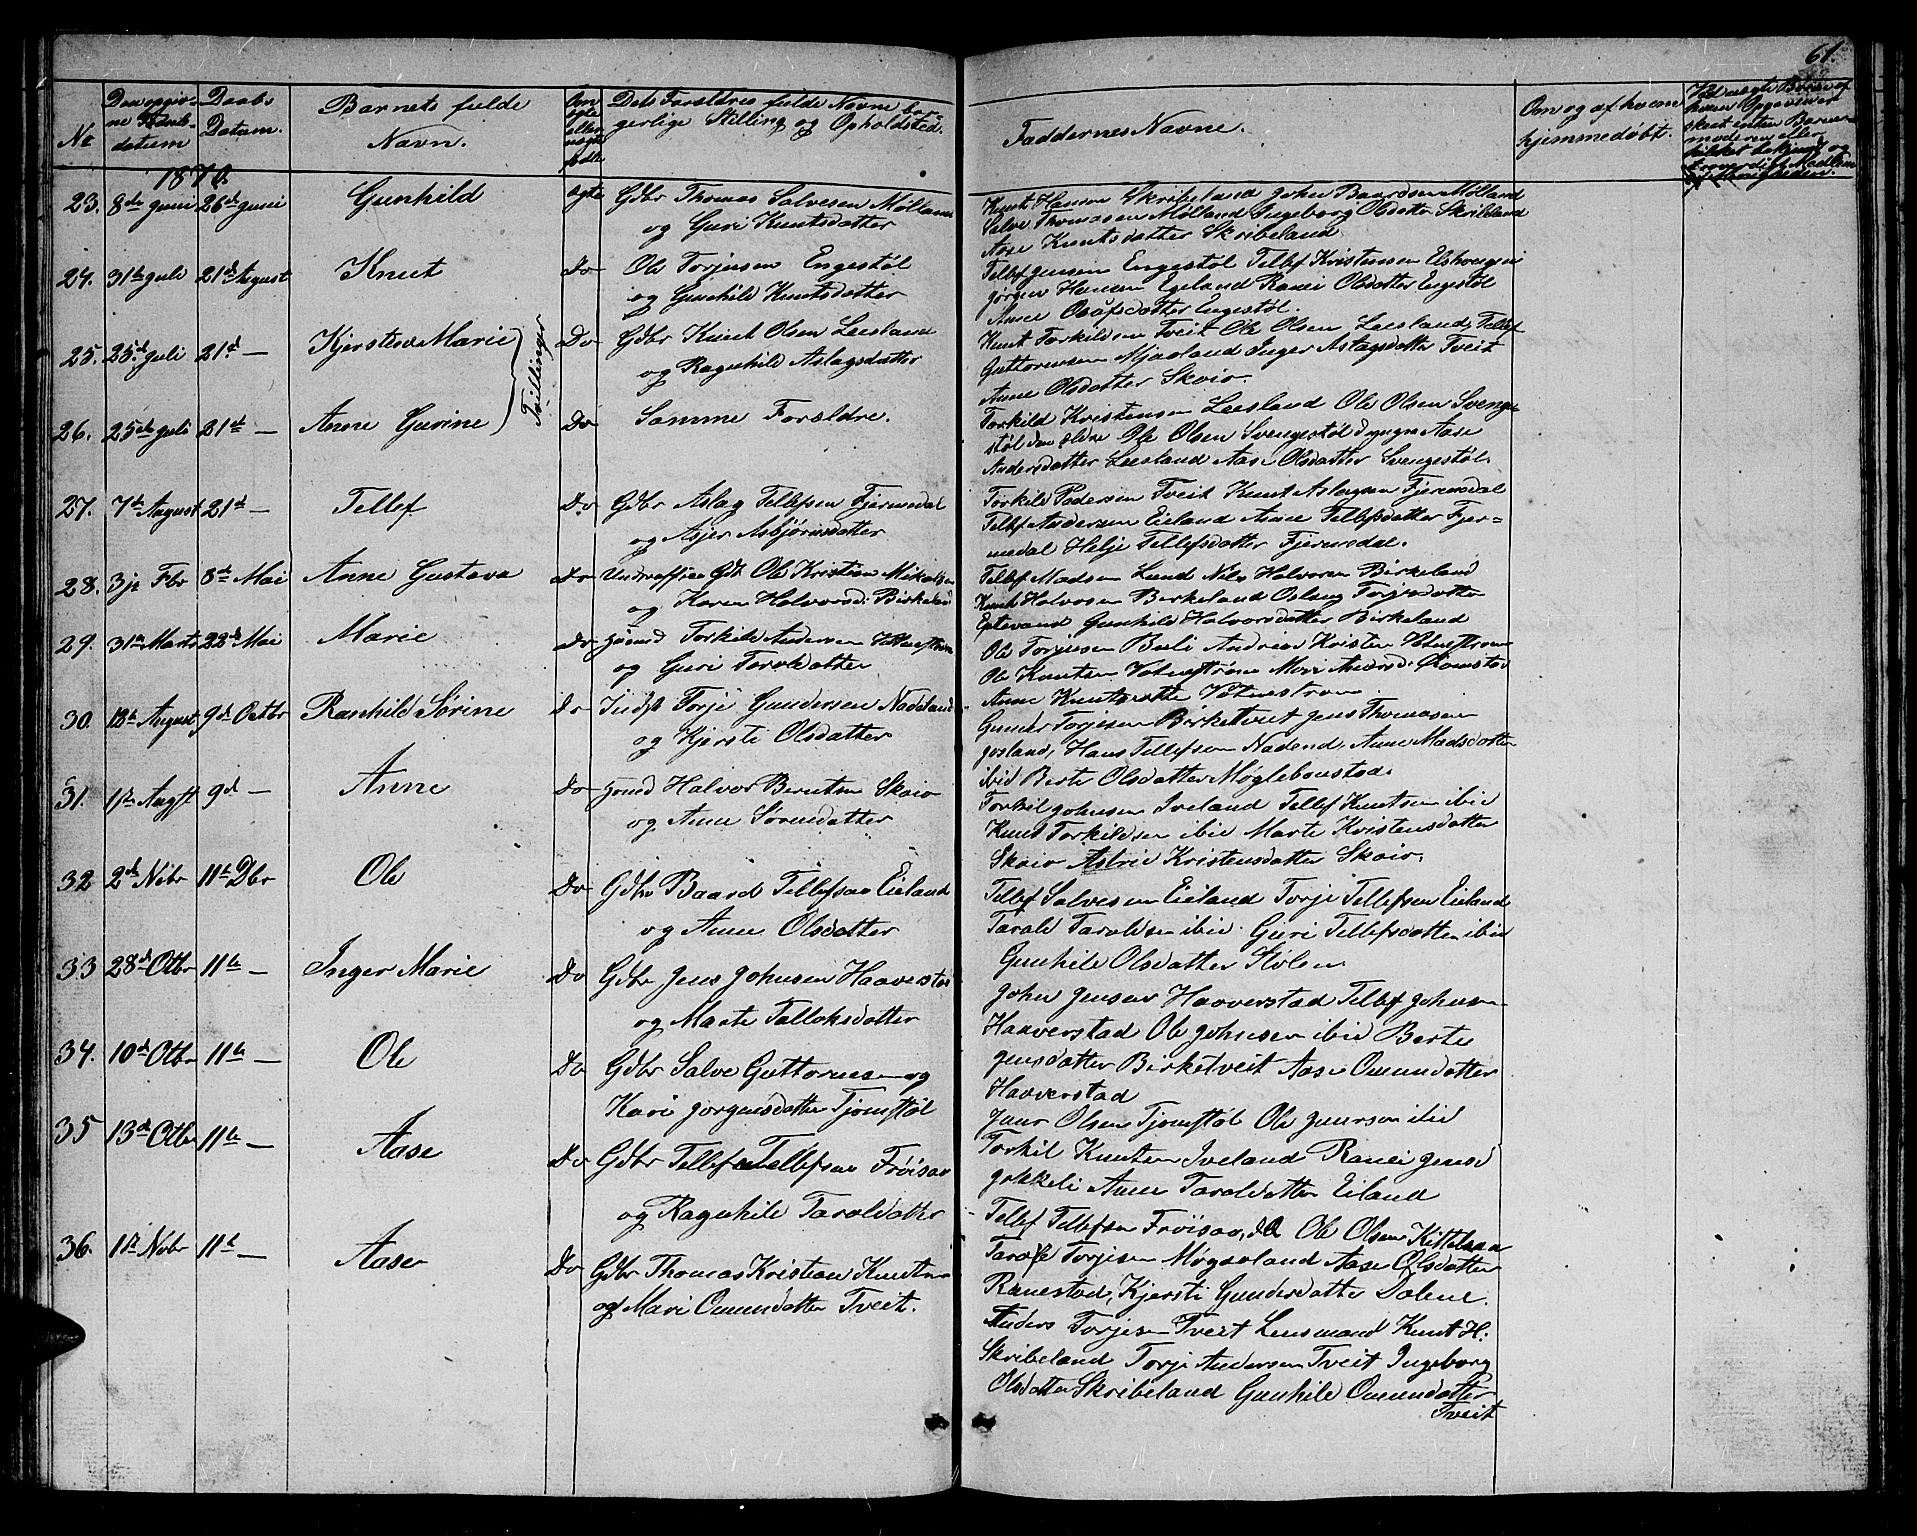 61.
No
Den opgivne Fødselsdatum
Daabs Datum.
Barnets fulde Navn.
Om ægte eller uægte født
Dets Forældres fulde Navne borgerlige Stilling og Opholdsted.
Faddernes Navne.
Om og af hvem hjemmedøbt.
1870.
23. 8de Juni 26de Juni Gunhild ægte Gdbr Thomas Salvesen Mølland
og Guri Knutsdatter
Knut Hansen Skribeland John Baardsen Mølland
Salve Thomasen Mølland Ingeborg Olsdatter Skribeland
Aase Knutsdatter Skribeland
24. 31te Juli 21de August Knut Do Ole Torjusen Engestøl
og Gunhild Knutsdatter
Tellef Jensen Engestøl Tellef Kristensen
Jørgen Hansen Egeland Ranei Olsdatter Engestøl
Anne Olafsdatter Engestøl.
25. 25de Juli 21de — Kjersten Marie Do Gdbr Knut Olsen Leesland
og Ragnhild Aslagsdatter
Tvillinger
Knut Torkildsen Tveit Ole Olsen Leesland, Tellef
Guttormsen Mjaaland Inger Aslagsdatter Tveit
Anne Olsdatter Skaio.
26. 25de Juli 21de — Anne Gurine Do Samme Forældre.
Torkild Kristensen Leesland Ole Olsen Svenge
støl den ældre Ole Olsen Svengestøl d yngre Aase
Andersdatter Leesland Aase Olsdatter Svengestøl.
27. 7de August 21de — Tellef Do Gdbr Aslag Tellefsen Fjermedal
og Asjer Asbjørnsdatter
Torkild Pedersen Tveit Knut Aslagsen Fjermedal
Tellef Andersen Eieland Anne Tellefsdatter Fjer=
medal Helje Tellefsdatter Fjermedal.
28. 3je Fbr 8de Mai Anne Gustava Do Underofficer Gdb Ole Kristian Mikalsen
og Karen Halvorsd: Birkeland
Tellef Madsen Lund Nils Halvorsen Birkeland
Knut Halvorsen Birkeland Aslaug Torjesdatter
Eptevand Gunhild Halvorsdatter Birkeland
29. 31te Marts 22de Mai Marie Do Huusmd Torkild Andersen
og Guri Taraldsdatter
Ole Torjusen Buli Andreas Kristen Vatnestrøm
Ole Knutsen Vatnestrøm Mari Andersd:
Anne Knutsdatter Vatnestrøm.
30. 18de August 9de Octbr Ranhild Sørine Do Indst Torje Gundersen Nadeland
og Kjersti Olsdatter
Gunder Torjesen Birketveit Jens Thomasen
Josland, Hans Tellefsen Nadend, Anne Madsdatter
ibid Berte Olsdatter Møglebonstad.
31. 1ste Augst 9de — Anne Do Huusmd Halvor Berntsen Skaio
og Anne Sørensdatter
Torkil Johnsen Iveland Tellef Knutsen ibid
Knut Torkildsen ibid Marte Kristensdatter
Skaio Astrid Kristensdatter Skaio.
32 2de Nvbr 11te Dbr Ole Do Gdbr Baard Tellefsen Eieland
og Anne Olsdatter
Tellef Salvesen Eieland Torje Tellefsen Eieland
Tarald Taraldsen ibid. Guri Tellefsdatter ibid
Gunhild Olsdatter Stølen
33 28de Otbr 11te — Inger Marie Do Gdbr Jens Johnsen Haaverstad
og Marte Talloksdatter
John Jensen Haaverstad Tellef Johnsen
Haaverstad Ole Johnsen ibid Berte
Jensdatter Birketveit Aase Omundatter
Haaverstad
34. 10de Otbr 11te — Ole Do Gdbr Salve Guttormsen og
Kari Jørgensdatter Tjomstøl
Jaur Olsen Tjomstøl Ole Jaursen ibid
Torkil Knutsen Iveland Ranei Jensd
Jokkeli Anne Taraldatter Eiland
35 13de Otbr 11te — Aase Do Gdbr Tellef Tellefsen Frøisaa
og Ragnhild Taraldatter
Tellef Tellefsen Frøisaa, d.æ Ole Olsen Kittelsaa
Taralf Torjesen Møgsoland Aase Olsdatter
Ranestad, Kjersti Gundersdatter Dalene.
36. 1ste Nvbr 11te — Aase Do Gdbr Thomas Kristian Knutsen
og Mari Omundatter Tveit.
Anders Torjesen Tveit Lensmand Knut H.
Skribeland Torje Andersen Tveit Ingeborg
Olsdatter Skribeland Gunhild Omundatter
Tveit